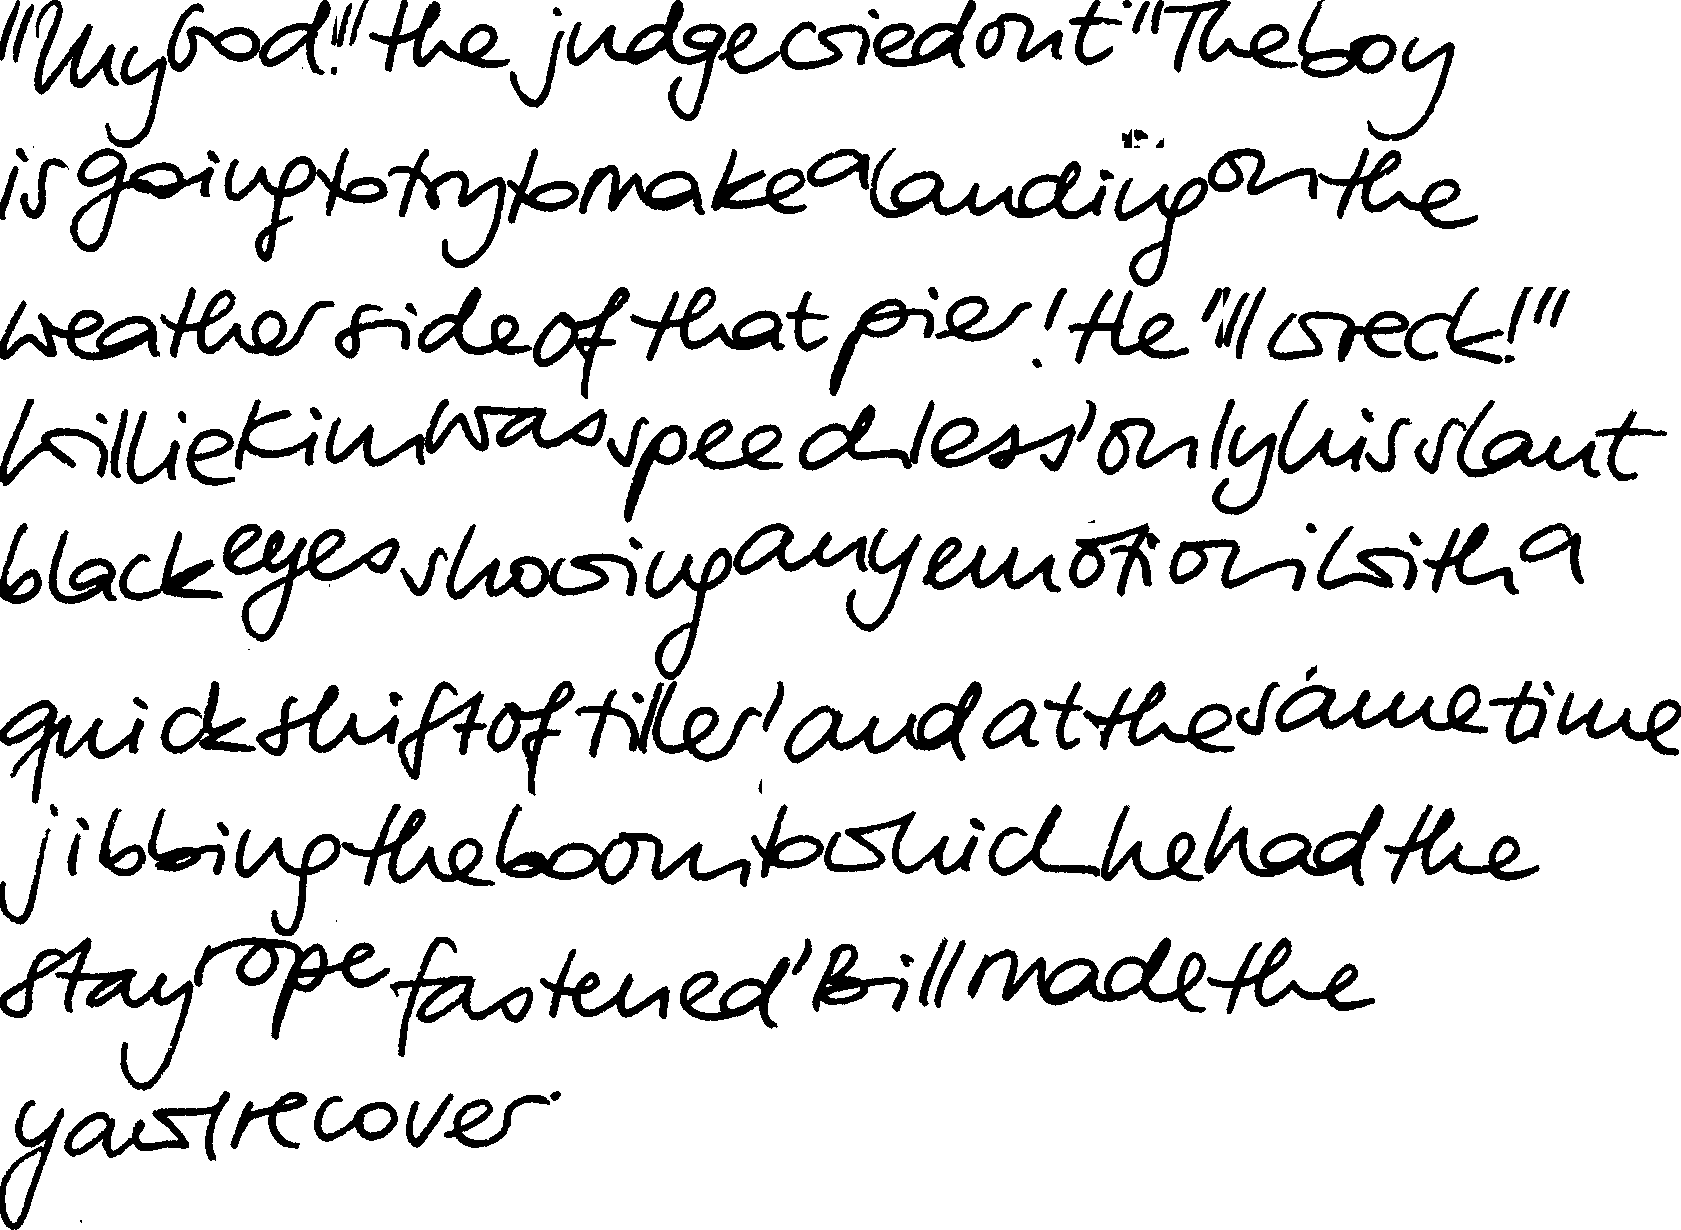 "My God!" the judge cried out. "The boy
is going to try to make a landing on the
weather side of that pier! He'll wreck!"
Willie Kim was speechless, only his slant
black eyes showing any emotion. With a
quick shift of tiller, and at the same time
jibbing the boom to which he had the
stay rope fastened, Bill made the
yawl recover.